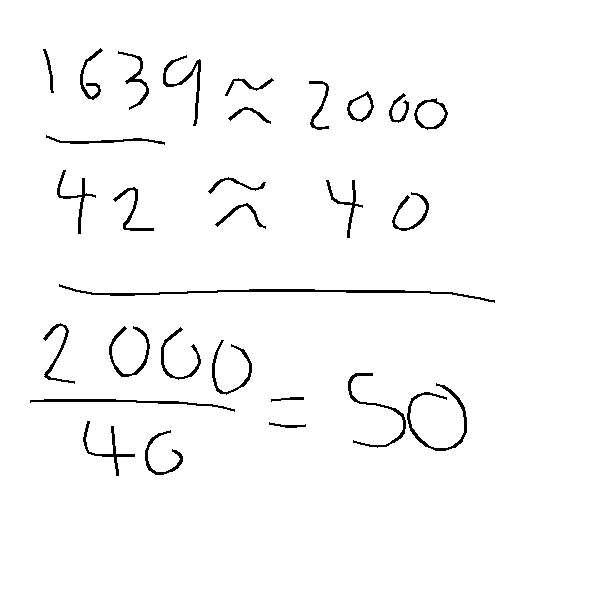 1639 ≈ 2000
42 ≈ 40
2000
40 = 50